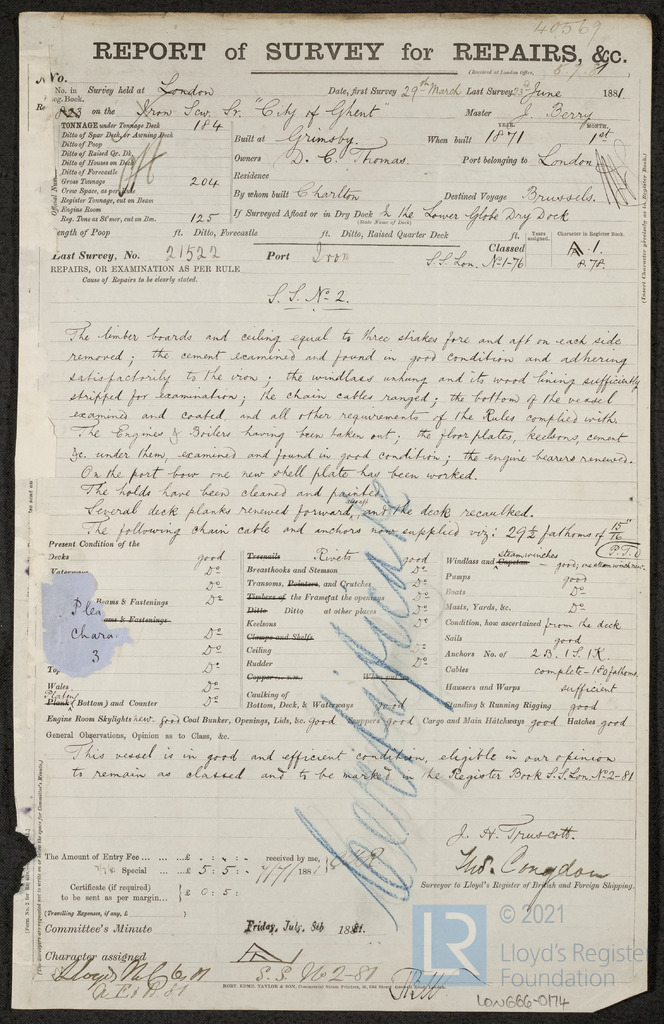 40569
REPORT of SURVEY for REPAIRS, &c.
(Received at London Office, 8/7/81
No.
No. in Survey held at London Date, first Survey 29th March Last Survey 23rd June 1881.
Reg. Book.
823 on the Iron Scw. Sr. "City of Ghent" Master J. Berry
TONNAGE under Tonnage Deck 184
Ditto of Spar Deck, or Awning Deck
Ditto of Poop
Ditto of Raised Qr. Dk.
Ditto of Houses on Deck
Ditto of Forecastle
Gross Tonnage 204
Crew Space, as per Rule
Register Tonnage, cut on Beam
Engine Room
Reg. Tons as St'mer, cut on Bm. 125
YEAR. MONTH.
Built at Grimsby. When built 1871 1st
Owners D. C. Thomas. Port belonging to London
Residence
By whom built Charlton Destined Voyage Brussels.
If Surveyed Afloat or in Dry Dock In the Lower Globe Dry Dock
(State Name of Dock)
Length of Poop ft. Ditto, Forecastle ft. Ditto, Raised Quarter Deck ft.
Years assigned. Character in Register Book.
Last Survey, No. 21522 Port Iron Classed A.1.
S.S. Lon. No 1-76 8.78.
REPAIRS, OR EXAMINATION AS PER RULE
Cause of Repairs to be clearly stated.
S.S. No 2.
The limber boards and ceiling equal to three strakes fore and aft on each side
removed; the cement examined and found in good condition and adhering
satisfactorily to the iron; the windlass unhung and its wood lining sufficiently
stripped for examination; the chain cables ranged; the bottom of the vessel
examined and coated, and all other requirements of the Rules complied with.
The Engines & Boilers having been taken out; the floor plates, keelsons, cement
&c. under them, examined and found in good condition; the engine bearers renewed.
On the port bow one new shell plate has been worked.
The holds have been cleaned and painted.
Several deck planks renewed forward, and the deck recaulked.
The following chain cable and anchors now supplied viz: 29½ fathoms of 15/16"
(P.T.O
Present Condition of the
Decks good
Waterways Do
Beams & Fastenings Do
Plea
Chara.
3
Do
Do
Do
Top Do
Wales Do
Plating
Plank (Bottom) and Counter Do
Treenails Rivets good
Breasthooks and Stemson Do
Transoms, Pointers, and Crutches Do
Timbers of the Frame at the openings Do
Ditto Ditto at other places Do
Keelsons Do
Clamps and Shelfs
Ceiling Do
Rudder Do
Copper
Caulking of
Bottom, Deck, & Waterways good
Windlass and Capstan steam winches good
Pumps good
Boats Do
Masts, Yards, &c. Do
Condition, how ascertained from the deck
Sails good
Anchors No. of 2 B. 1 S. 1 K.
Cables complete - 180 fathoms.
Hawsers and Warps sufficient
Standing & Running Rigging good
Engine Room Skylights new - good Coal Bunker, Openings, Lids, &c. good Scuppers good Cargo and Main Hatchways good Hatches good
General Observations, Opinion as to Class, &c.
This vessel is in good and efficient condition, eligible in our opinion
to remain as classed and to be marked in the Register Book S.S. Lon. No 2-81
Certificate
J. H. Truscott.
Thos. Congdon
Surveyor to Lloyd's Register of British and Foreign Shipping.
The Amount of Entry Fee ... £ : : received by me,
Special ... £ 5 : 5 : 7/7/1881
Certificate (if required) to be sent as per margin £ 0 : 5 :
(Travelling Expenses, if any, £ )
Committee's Minute Friday, July 8th 1881.
Character assigned A
S.S. No 2-81
Lloyds M.C. 6.81
© 2021
LR
Lloyd's Register
Foundation
LON666-0174